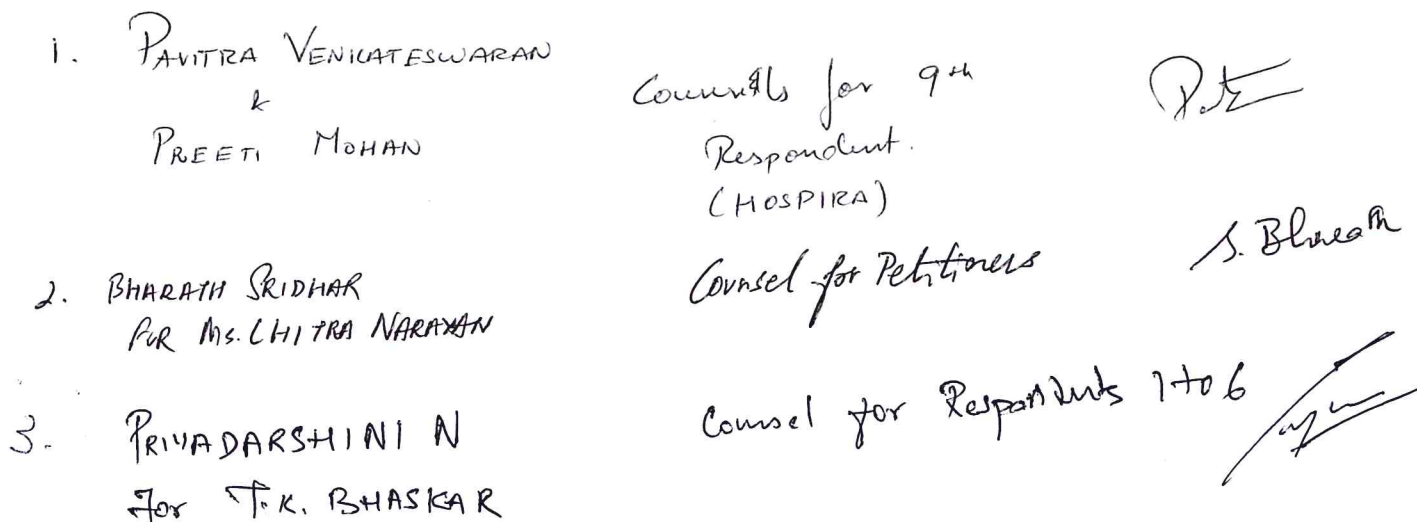 1. PAVITRA VENKATESWARAN
&
PREETI MOHAN
Counsels for 9th
Respondent.
(HOSPIRA)
2. BHARATH SRIDHAR
FOR MS. CHITRA NARAYAN
Counsel for Petitioners
S. Bharath
3. PRIYADARSHINI N
For T.K. BHASKAR
Counsel for Respondents 1 to 6